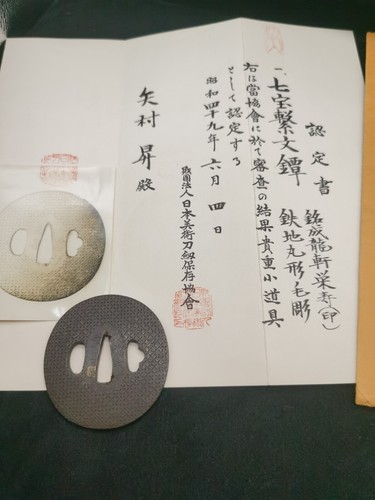 認定書
一、七宝繋文鐔 銘成龍軒栄寿(印)
鉄地丸形毛彫
右は當協會に於て審査の結果貴重小道具
として認定する
昭和四十九年六月四日
財團法人日本美術刀剣保存協會
矢村昇殿